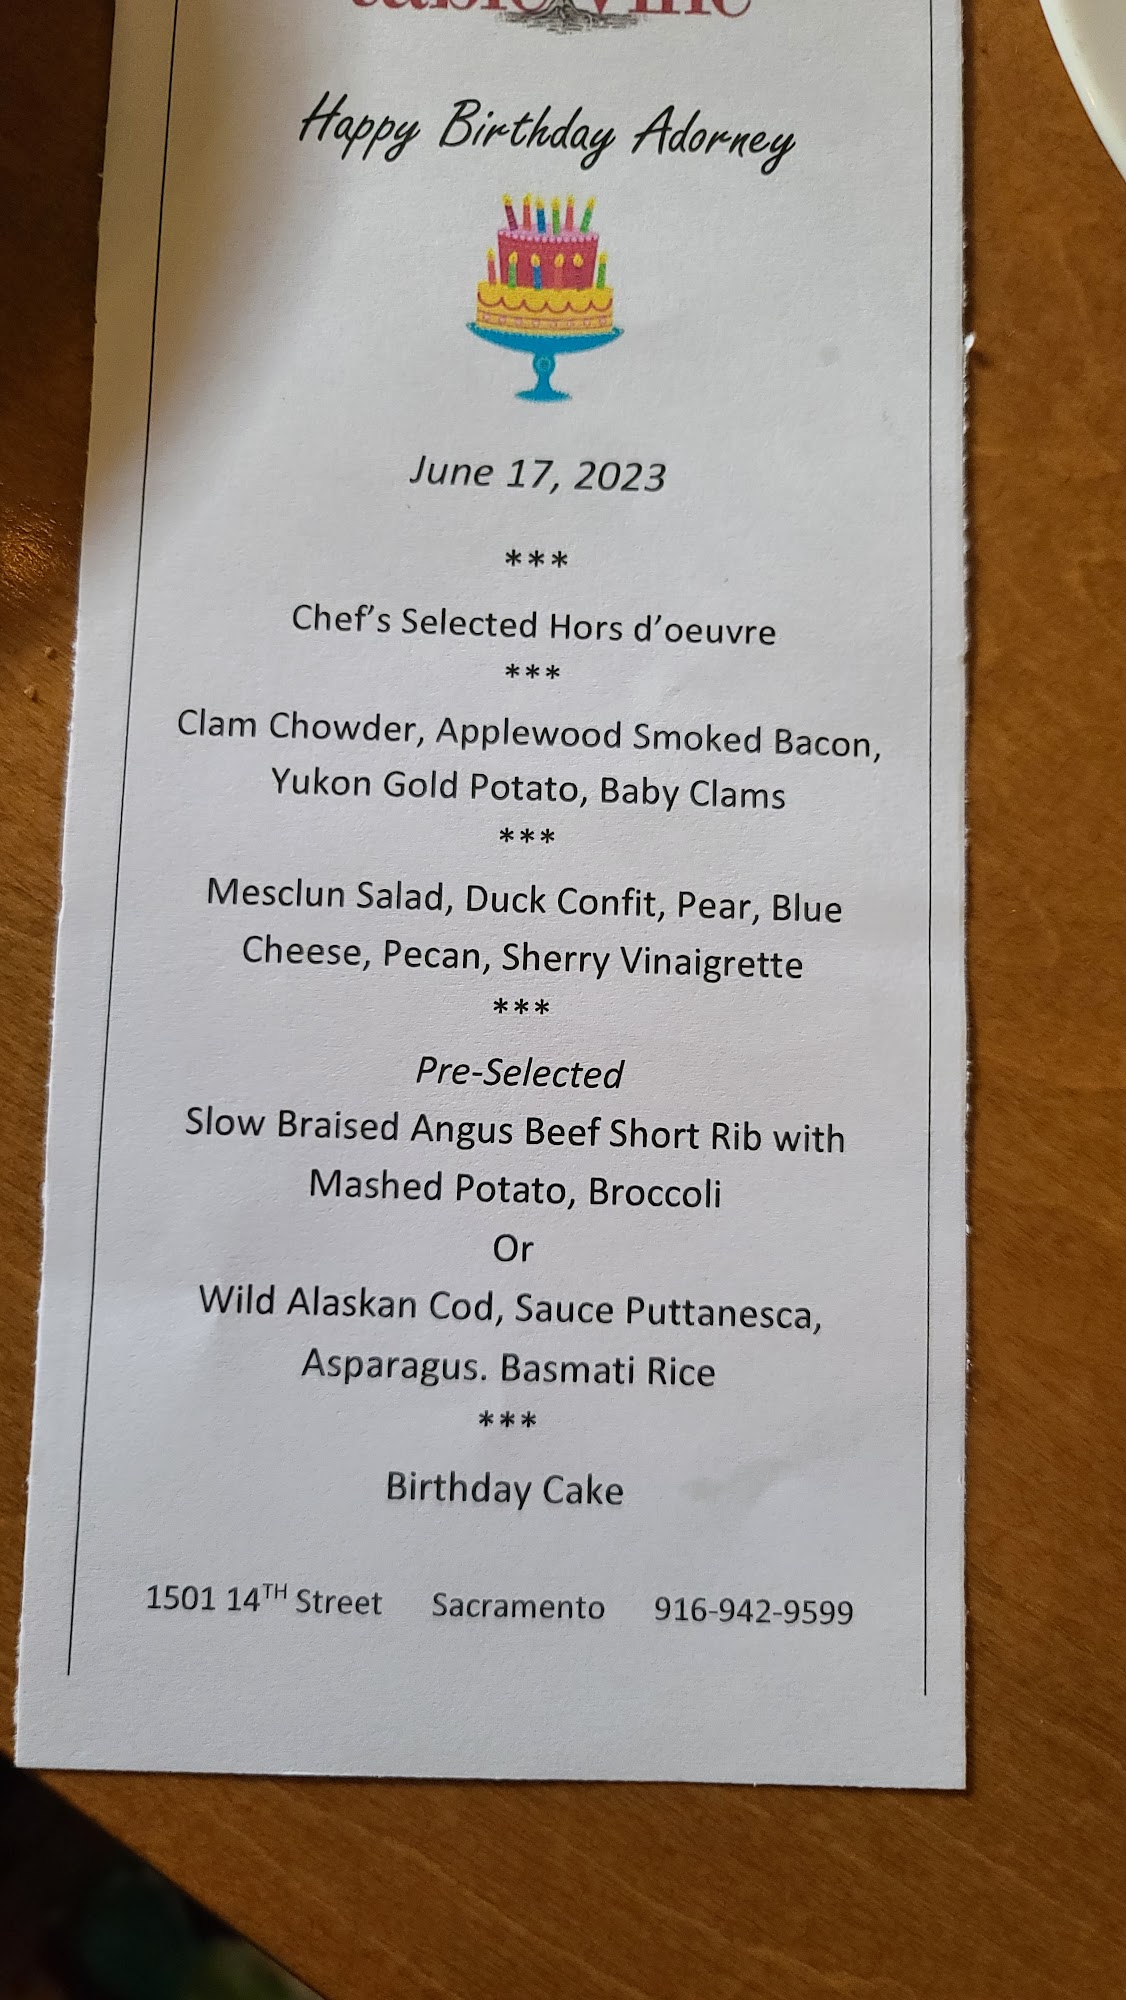 table Vine
Happy Birthday Adorney
June 17, 2023
***
Chef's Selected Hors d'oeuvre
***
Clam Chowder, Applewood Smoked Bacon,
Yukon Gold Potato, Baby Clams
***
Mesclun Salad, Duck Confit, Pear, Blue
Cheese, Pecan, Sherry Vinaigrette
***
Pre-Selected
Slow Braised Angus Beef Short Rib with
Mashed Potato, Broccoli
Or
Wild Alaskan Cod, Sauce Puttanesca,
Asparagus. Basmati Rice
***
Birthday Cake
1501 14TH Street Sacramento 916-942-9599